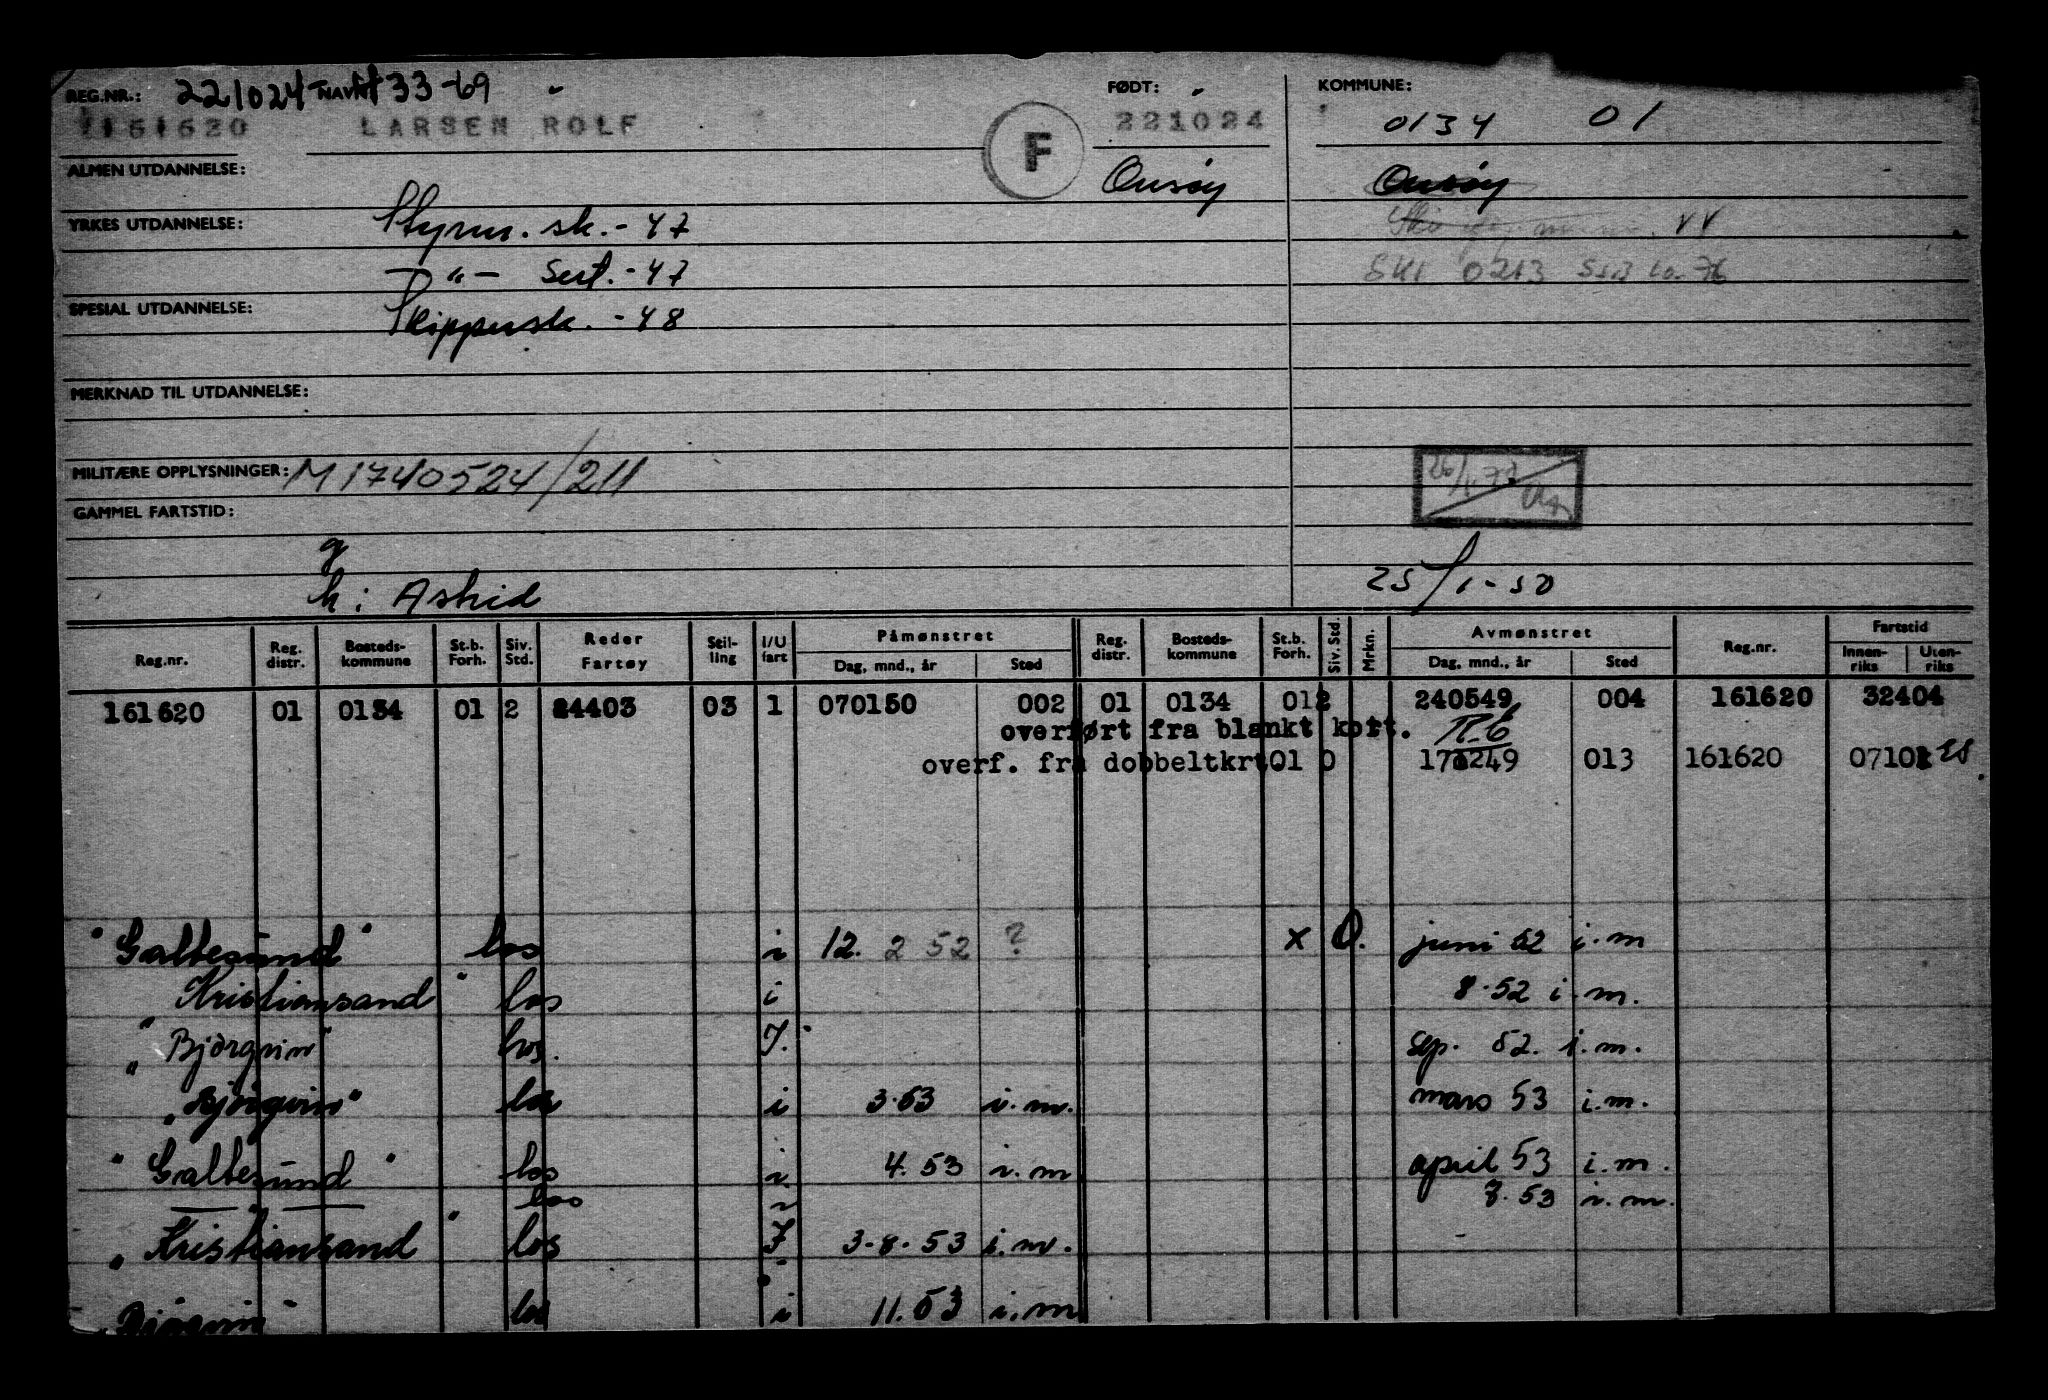 REG.NR.: 221024 NAVN: 33-69 FØDT: KOMMUNE:
161620 LARSEN ROLF F 221024 0134 01
ALMEN UTDANNELSE: Onsøy Onsøy
YRKES UTDANNELSE: Styrm. sk. - 47
— " — Sert. - 47 SKI 0213
SPESIAL UTDANNELSE: Skippersk. - 48
MERKNAD TIL UTDANNELSE:
MILITÆRE OPPLYSNINGER: M1740524/211
GAMMEL FARTSTID:
g
h: Astrid 25/1-50
Reg.nr. Reg. distr. Bosteds-kommune St.b. Forh. Siv. Std. Reder Fartøy Stil-ling I/U fart Påmønstret Dag, mnd., år Sted Reg. distr. Bosteds-kommune St.b. Forh. Siv. Std. Mrkn. Avmønstret Dag, mnd., år Sted Reg.nr. Fartstid Innen-riks Uten-riks
161620 01 0134 01 2 24403 03 1 070150 002 01 0134 012 240549 004 161620 32404
overført fra blankt kort.
overf. fra dobbeltkrt. 01 0 170249 013 161620 0710
"Galtesund" los i 12. 2 52 ? x 0. juni 52 i.m
"Kristiansand" los i 8.52 i.m.
"Bjørgvin" los. I. sep. 52. i.m.
"Bjørgvin" los i 3.53 i.m. mars 53 i.m.
"Galtesund" los i 4.53 i.m april 53 i.m.
— " — los i 7.53 i.m.
"Kristiansand" los I 3.8.53 i.m. -
"Bjørgvin" los i 11.53 i.m